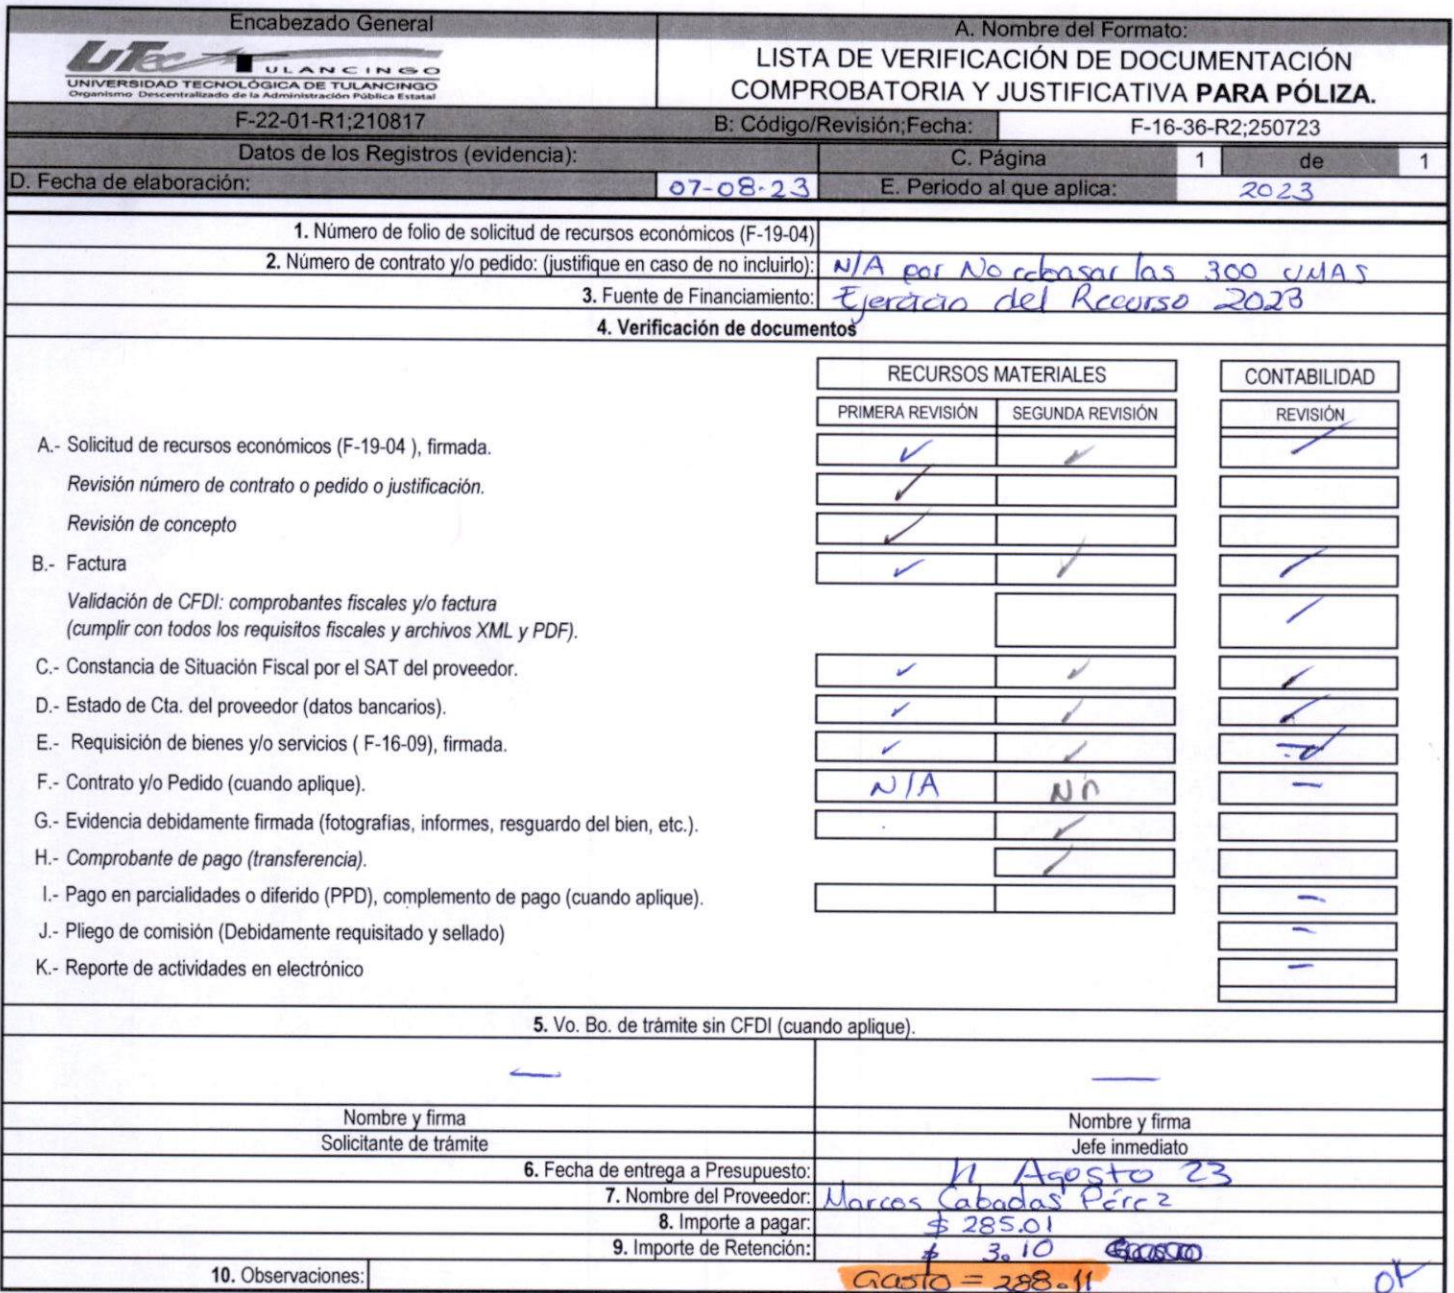 Encabezado General
A. Nombre del Formato:
UTec TULANCINGO
UNIVERSIDAD TECNOLÓGICA DE TULANCINGO
Organismo Descentralizado de la Administración Pública Estatal
LISTA DE VERIFICACIÓN DE DOCUMENTACIÓN
COMPROBATORIA Y JUSTIFICATIVA PARA PÓLIZA.
F-22-01-R1;210817
B: Código/Revisión;Fecha: F-16-36-R2;250723
Datos de los Registros (evidencia):
C. Página 1 de 1
D. Fecha de elaboración: 07-08-23
E. Periodo al que aplica: 2023
1. Número de folio de solicitud de recursos económicos (F-19-04)
2. Número de contrato y/o pedido: (justifique en caso de no incluirlo): N/A por No rebasar las 300 UMAS
3. Fuente de Financiamiento: Ejercicio del Recurso 2023
4. Verificación de documentos
RECURSOS MATERIALES
CONTABILIDAD
PRIMERA REVISIÓN SEGUNDA REVISIÓN
REVISIÓN
A.- Solicitud de recursos económicos (F-19-04 ), firmada.
Revisión número de contrato o pedido o justificación.
Revisión de concepto
B.- Factura
Validación de CFDI: comprobantes fiscales y/o factura
(cumplir con todos los requisitos fiscales y archivos XML y PDF).
C.- Constancia de Situación Fiscal por el SAT del proveedor.
D.- Estado de Cta. del proveedor (datos bancarios).
E.- Requisición de bienes y/o servicios ( F-16-09), firmada.
F.- Contrato y/o Pedido (cuando aplique). N/A
G.- Evidencia debidamente firmada (fotografías, informes, resguardo del bien, etc.).
H.- Comprobante de pago (transferencia).
I.- Pago en parcialidades o diferido (PPD), complemento de pago (cuando aplique).
J.- Pliego de comisión (Debidamente requisitado y sellado)
K.- Reporte de actividades en electrónico
5. Vo. Bo. de trámite sin CFDI (cuando aplique).
Nombre y firma
Nombre y firma
Solicitante de trámite
Jefe inmediato
6. Fecha de entrega a Presupuesto: Agosto 23
7. Nombre del Proveedor: Marcos Cabadas Pérez
8. Importe a pagar: $ 285.01
9. Importe de Retención: $ 3.10
10. Observaciones: Gasto = 288.11
OK